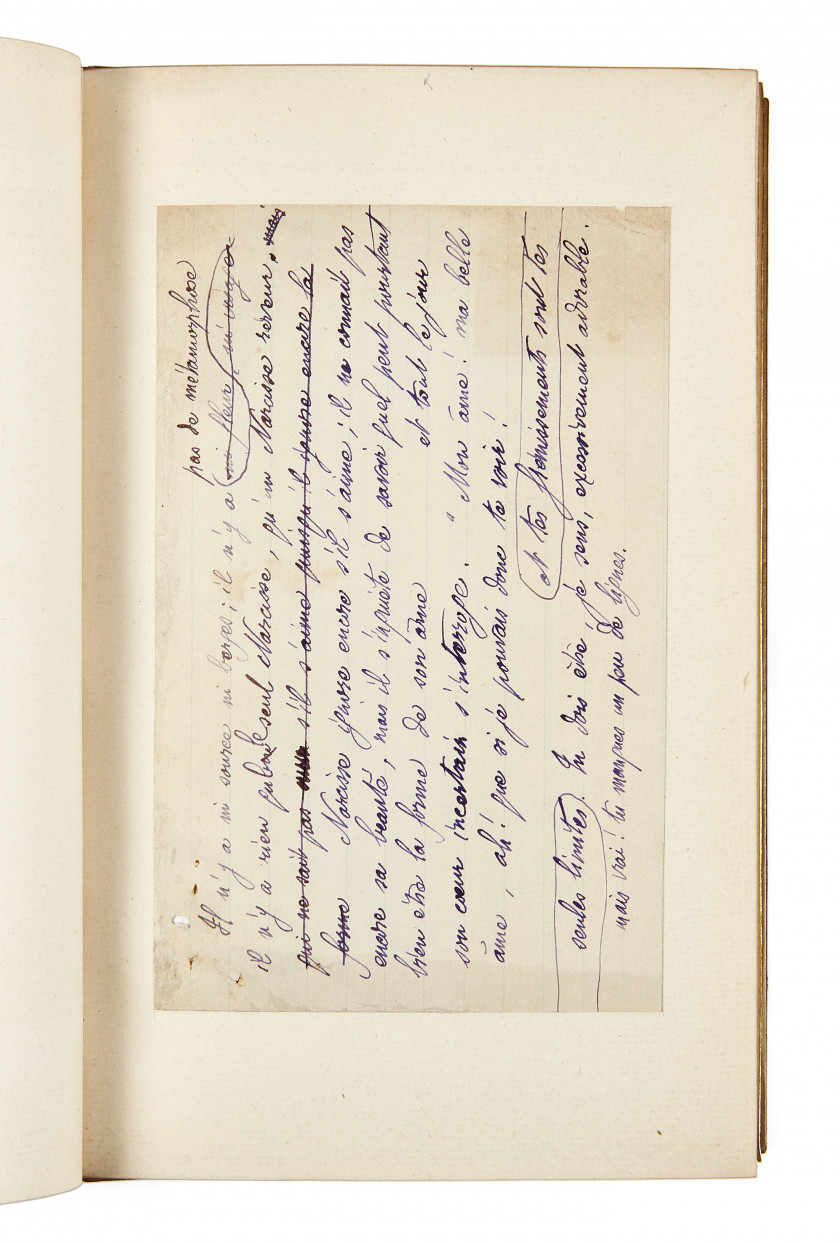 pas de métamorphose
Il n'y a ni source ni berges ; il n'y a ni fleur, ni image
il n'y a rien que le seul Narcisse, qu'un Narcisse rêveur, mais
qui ne sait pas s'il s'aime puisqu'il ignore encore la
forme Narcisse ignore encore s'il s'aime ; il ne connait pas
encore sa beauté, mais il s'inquiète de savoir quel peut pourtant
bien être la forme de son âme et tout le jour
son cœur incertain s'interroge. " Mon âme ! ma belle
âme, ah ! que si je pouvais donc te voir !
et tes frémissements sont tes
seules limites. Tu dois être, je sens, excessivement adorable.
mais vrai ! tu manques un peu de lignes.